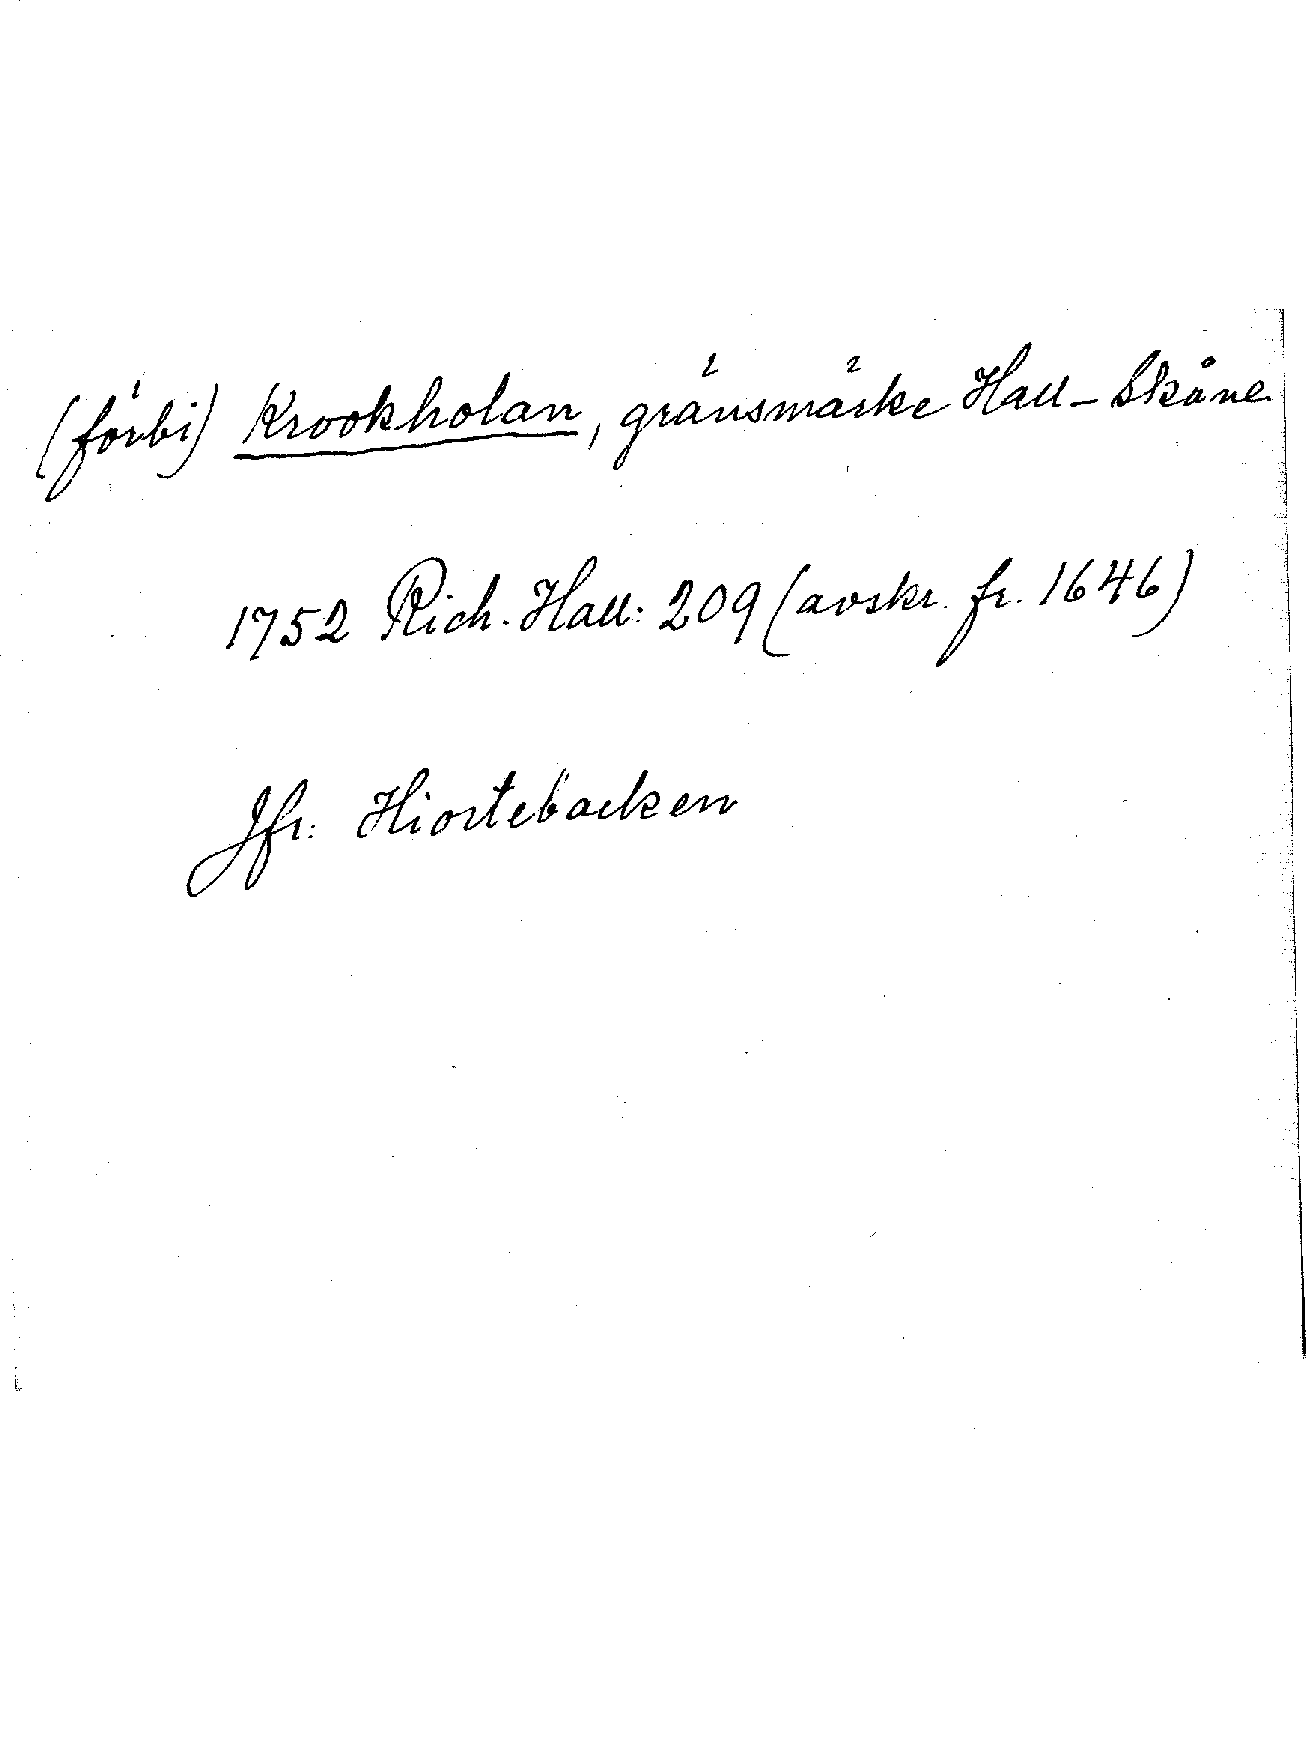 (förbi) Krookholan, gränsmärke Hall-Skåne
1752 Rich. Hall: 209 (avskr. fr. 1646)
Jfr: Hiortebäcken